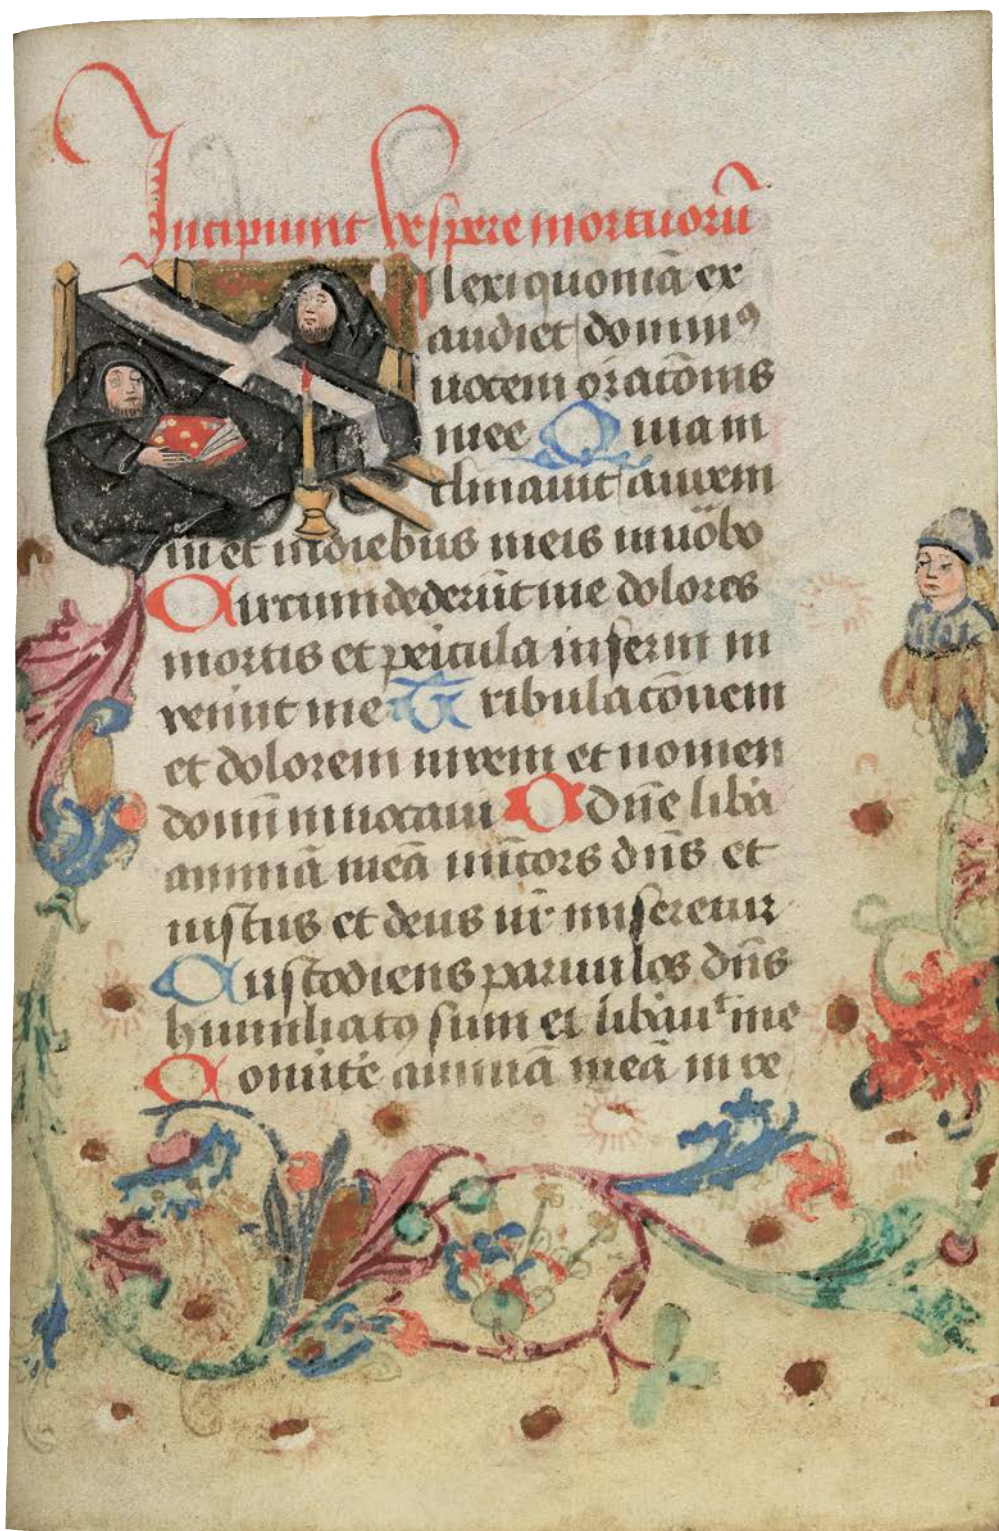 Incipiunt vespere mortuorū
Dilexi quoniā ex
audiet dominꝰ
uocem oratōnis
mee Quia in
clinauit aurem
in et indiebus meis inuōbo
Circumdederūt me dolores
mortis et peicula inferni in
venīut me Tribulatōnem
et dolorem inveni et nomen
domī inuocaui O dn̄e libā
animā meā mīcors dn̄s et
iustus et deus nr̄ miseretur
Custodiens paruulos dn̄s
humiliatꝰ sum et libāuᵗ me
Conūte animā meā in re